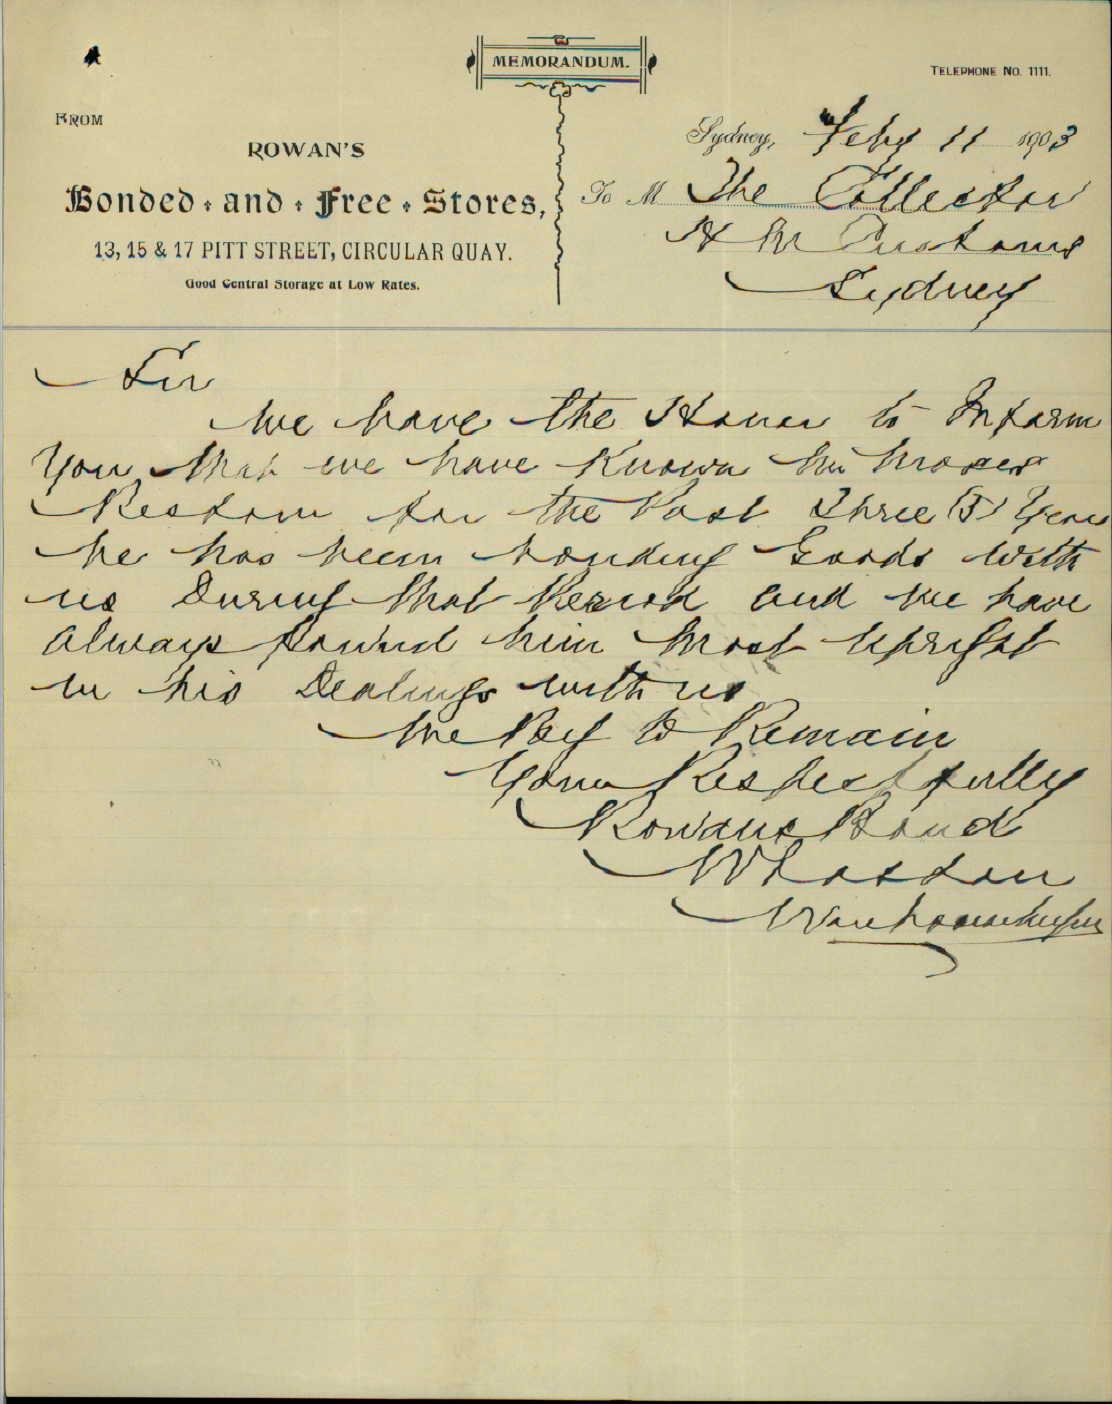 MEMORANDUM.
TELEPHONE NO. 1111.
FROM
ROWAN'S
Bonded and Free Stores,
13, 15 & 17 PITT STREET, CIRCULAR QUAY.
Good Central Storage at Low Rates.
Sydney, Feby 11 1903
To M The Collector
H M Customs
Sydney
Sir
We have the Honor to Inform
You that we have Known Mr Moses
for the Past Three (3) Years
he has been bonding Goods with
us During that Period and we have
always found him most Upright
in his Dealings with us
We Beg to Remain
Your Respectfully
Rowans Bond